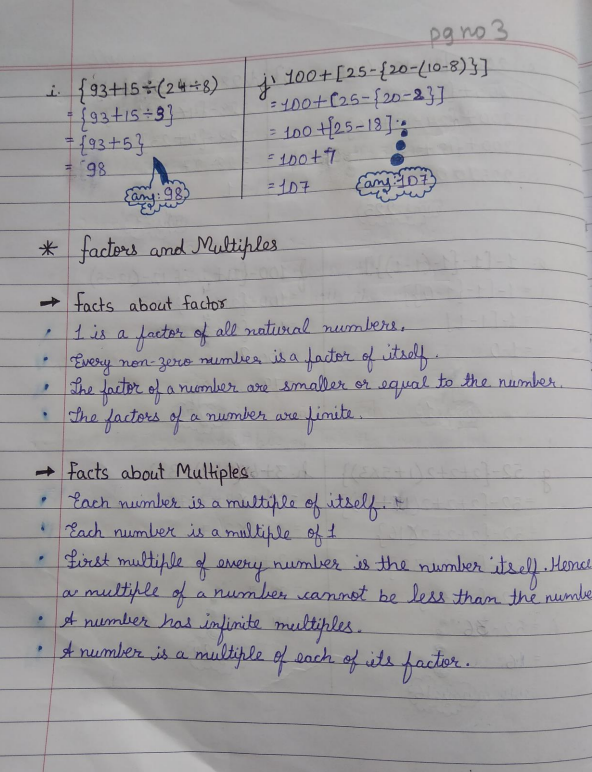 pg no 3
i. {93+15÷(24÷8)
= {93+15÷3}
= {93+5}
= 98
ans: 98
j. 100+[25-{20-(10-8)}]
= 100+[25-{20-2}]
= 100+[25-18]
= 100+7
= 107
ans: 107
* factors and Multiples
→ facts about factor
• 1 is a factor of all natural numbers.
• Every non-zero number is a factor of itself.
• The factor of a number are smaller or equal to the number.
• The factors of a number are finite.
→ facts about Multiples
• Each number is a multiple of itself.
• Each number is a multiple of 1
• First multiple of every number is the number itself. Hence
a multiple of a number cannot be less than the numbe
• A number has infinite multiples.
• A number is a multiple of each of its factor.